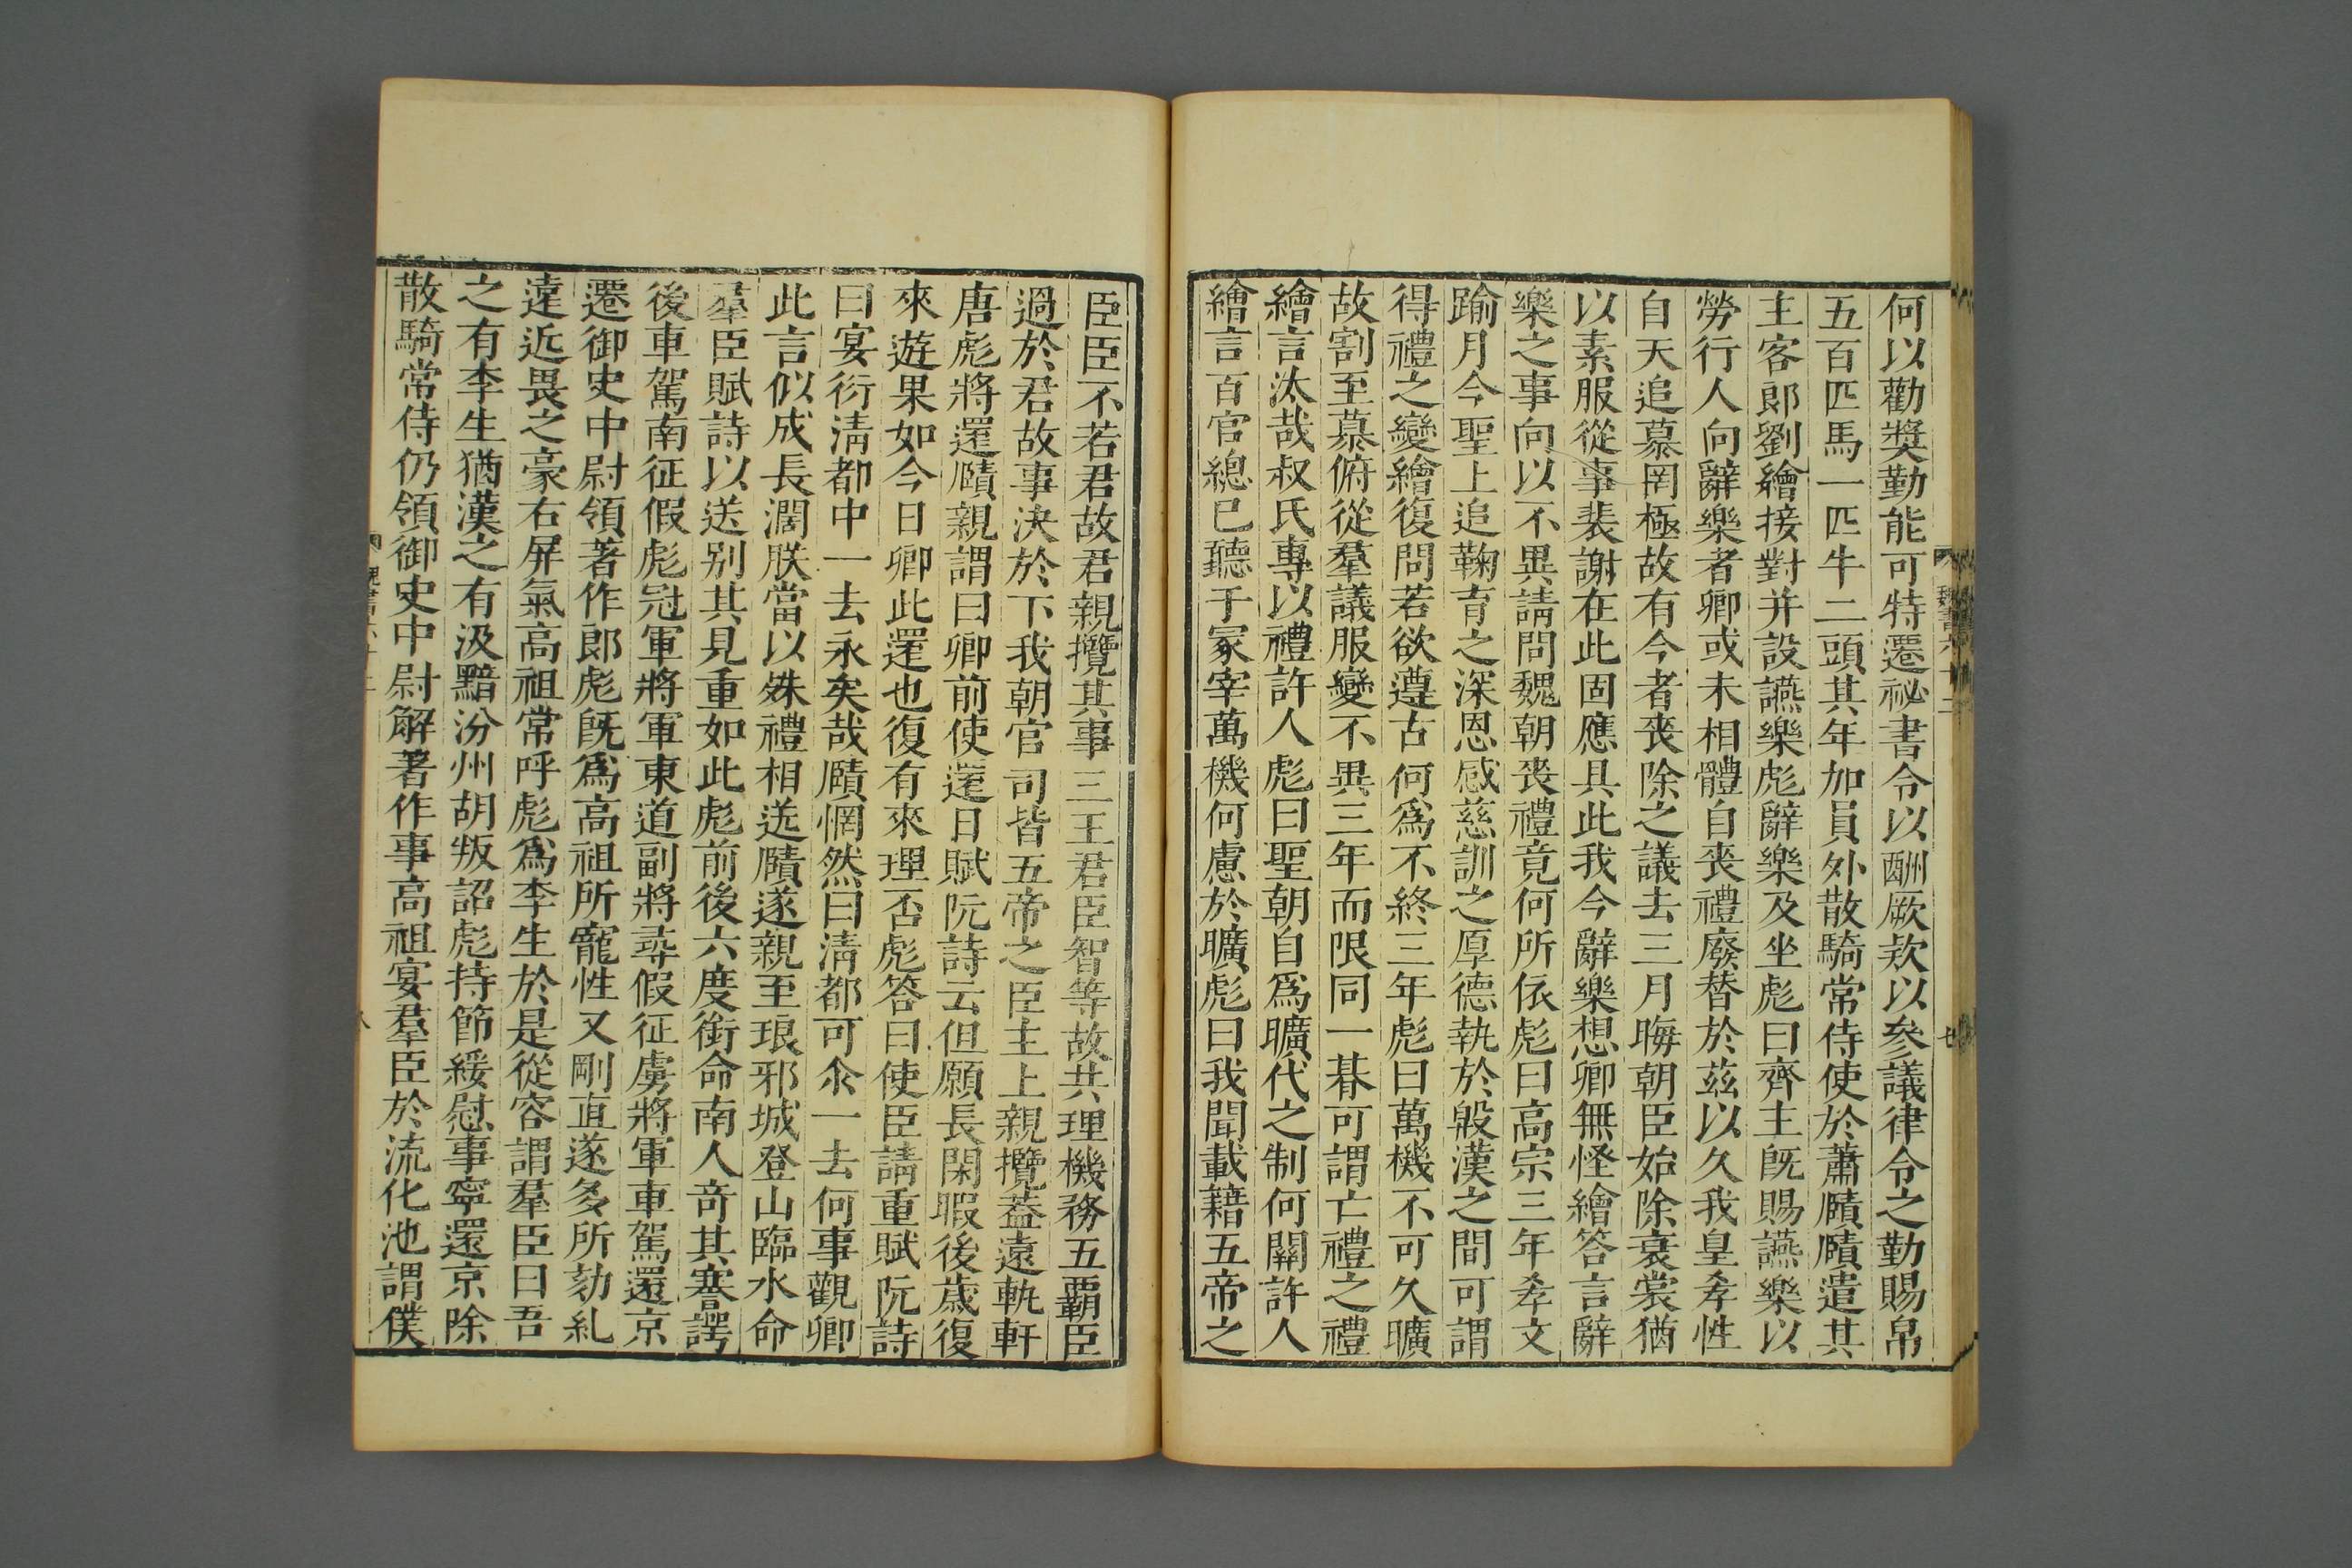 何以勸奬勤能可特遷祕書令以酬厥款以參議律令之勤賜帛
五百匹馬一匹牛二頭其年加員外散騎常侍使於蕭賾賾遣其
主客郎劉繪接對并設讌樂彪辭樂及坐彪曰齊主旣賜讌樂以
勞行人向辭樂者卿或未相體自喪禮廢替於茲以久我皇孝性
自天追慕罔極故有今者喪除之議去三月晦朝臣始除衰裳猶
以素服從事裴謝在此固應具此我今辭樂想卿無怪繪答言辭
樂之事向以不異請問魏朝喪禮竟何所依彪曰高宗三年孝文
踰月今聖上追鞠育之深恩感慈訓之厚德執於殷漢之間可謂
得禮之變繪復問若欲遵古何爲不終三年彪曰萬機不可久曠
故割至慕俯從羣議服變不異三年而限同一朞可謂亡禮之禮
繪言汰哉叔氏專以禮許人彪曰聖朝自爲曠代之制何關許人
繪言百官總已聽于冢宰萬機何慮於曠彪曰我聞載籍五帝之
臣臣不若君故君親攬其事三王君臣智等故共理機務五霸臣
過於君故事決於下我朝官司皆五帝之臣主上親攬蓋遠軌軒
唐彪將還賾親謂曰卿前使還日賦阮詩云但願長閑暇後歲復
來遊果如今日卿此還也復有來理否彪答曰使臣請重賦阮詩
曰宴衍清都中一去永矣哉賾惘然曰清都可尒一去何事觀卿
此言似成長闊朕當以殊禮相送賾遂親至琅邪城登山臨水命
羣臣賦詩以送别其見重如此彪前後六度銜命南人奇其謇諤
後車駕南征假彪冠軍將軍東道副將尋假征虜將軍車駕還京
遷御史中尉領著作郎彪旣爲高祖所寵性又剛直遂多所劾糺
遠近畏之豪右屏氣高祖常呼彪爲李生於是從容謂羣臣曰吾
之有李生猶漢之有汲黯汾州胡叛詔彪持節綏慰事寧還京除
散騎常侍仍領御史中尉解著作事高祖宴羣臣於流化池謂僕